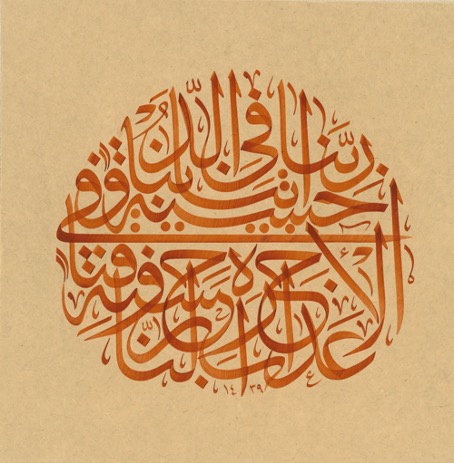 ربنا اتنا في الدنيا حسنة وفي
الآخرة حسنة وقنا عذاب النار
١٤٣٩